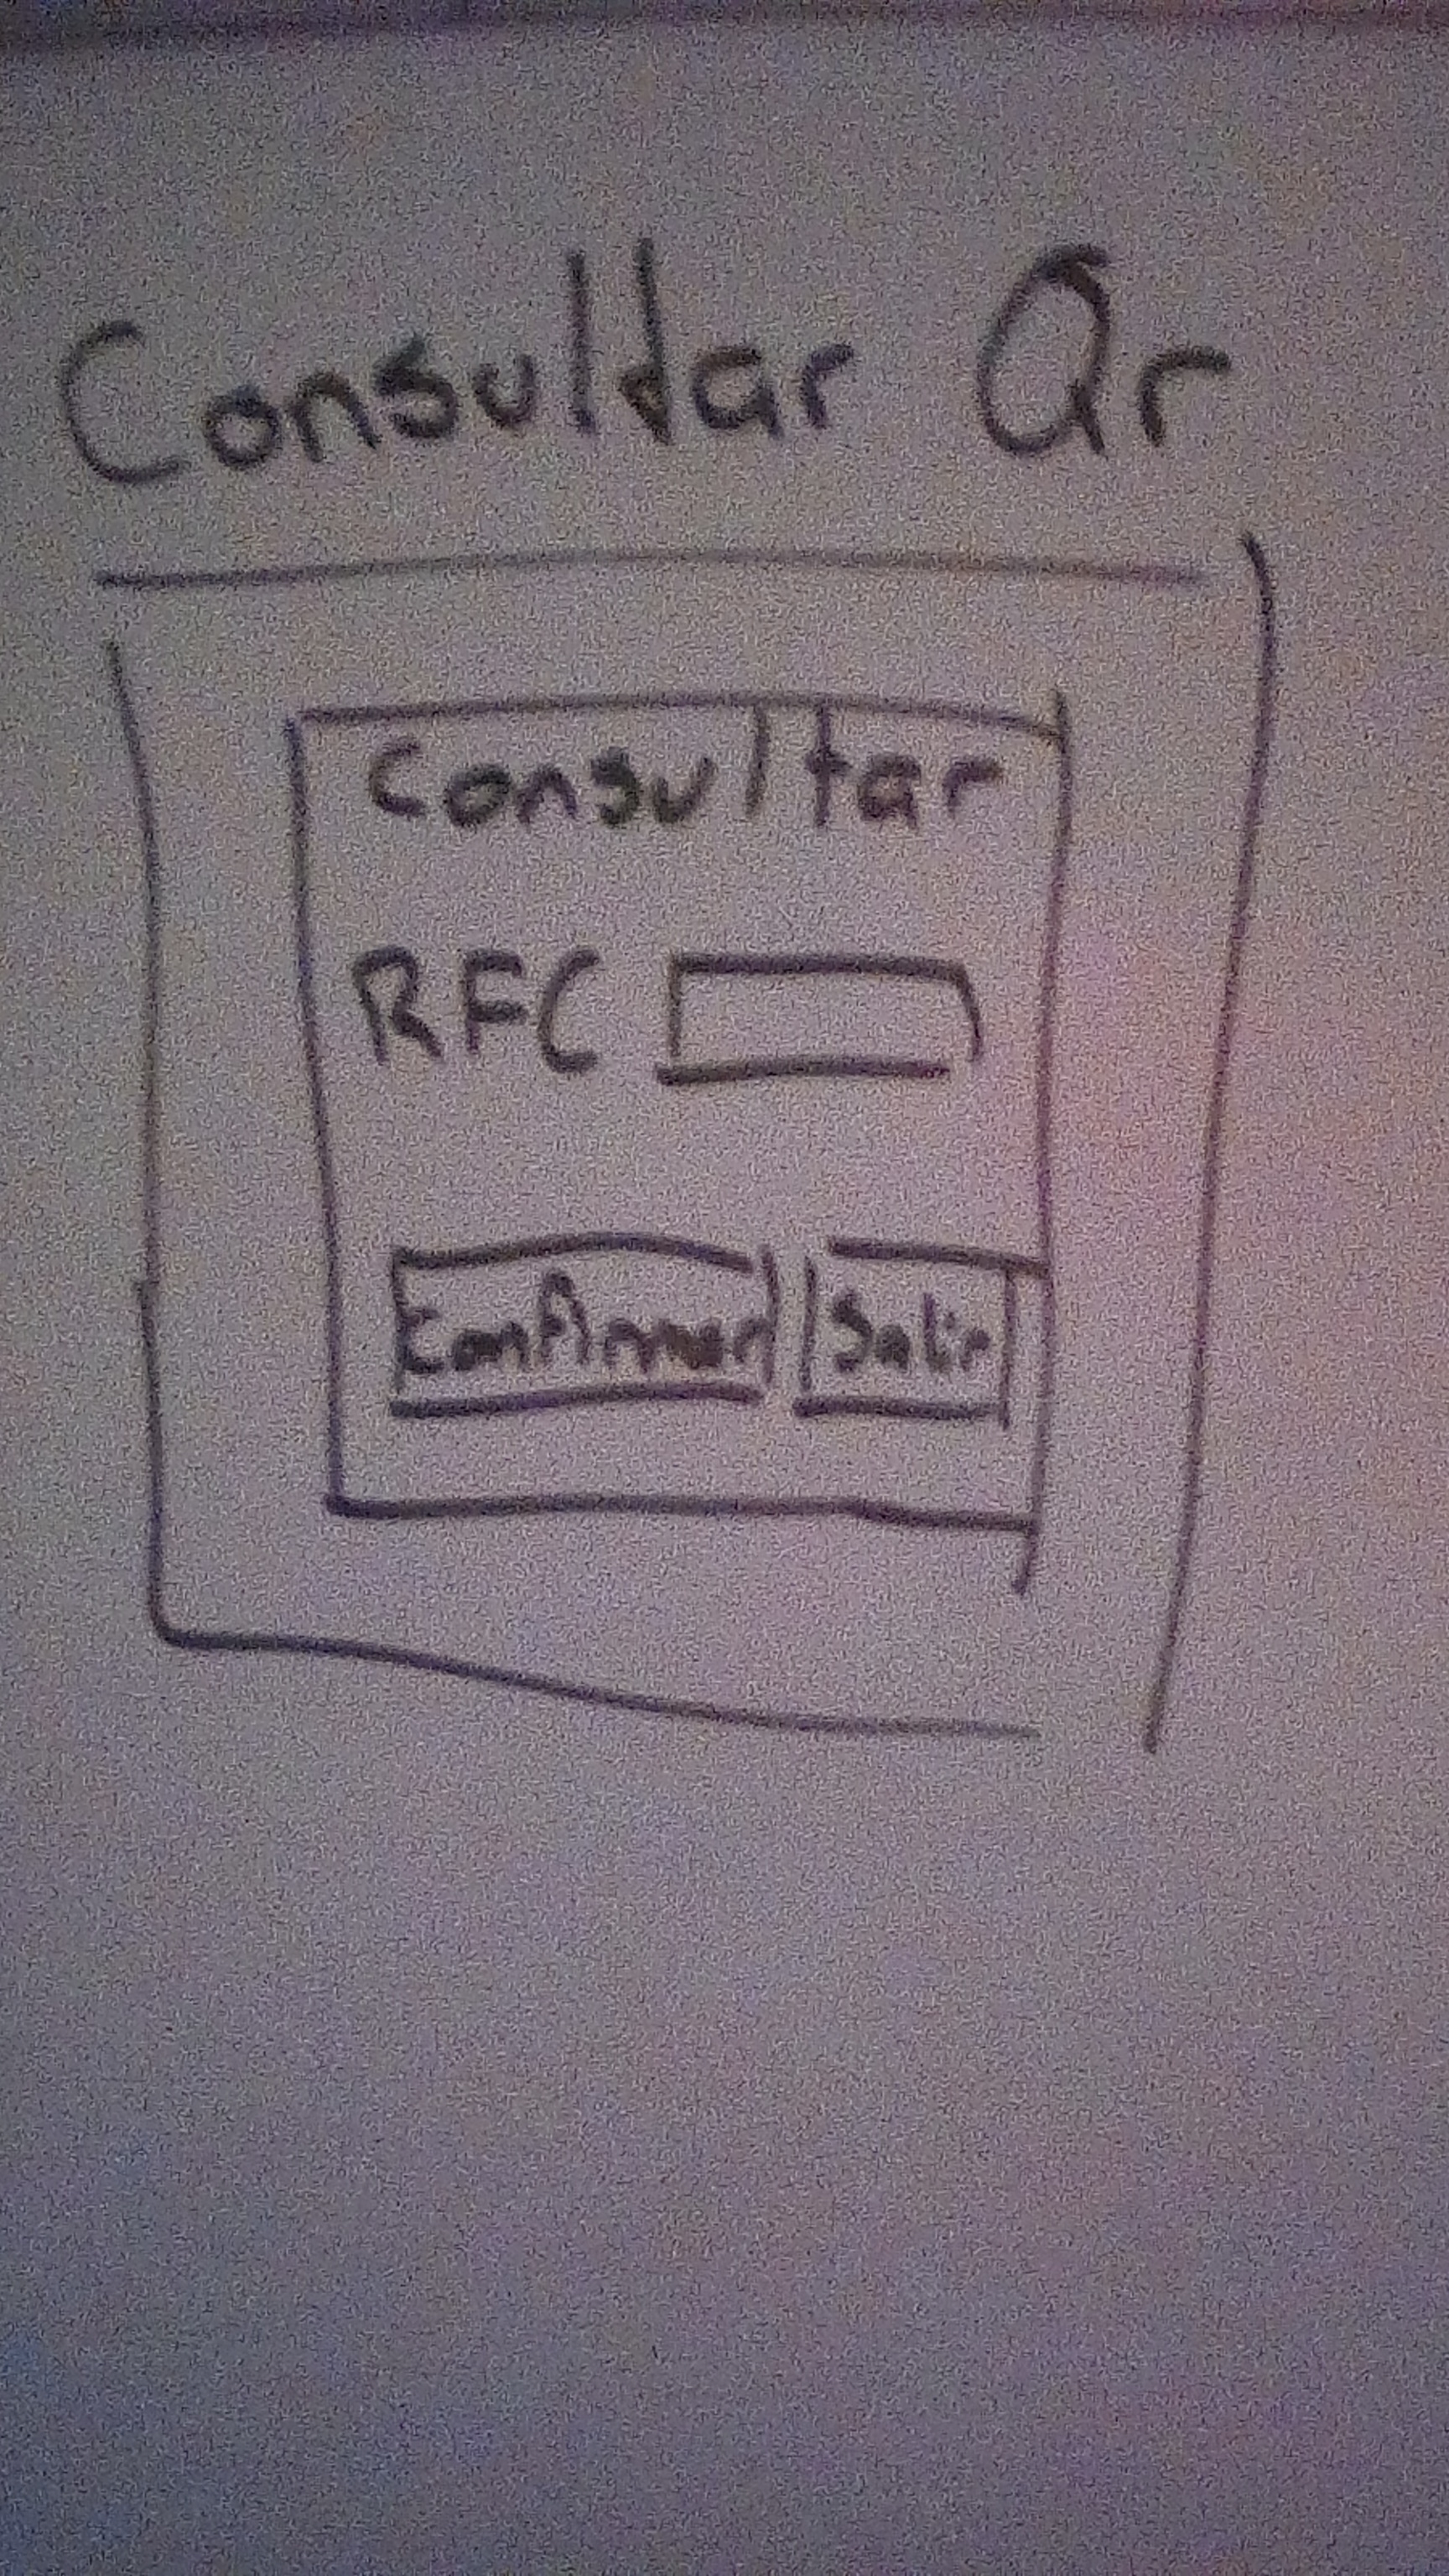 Consultar Qr
Consultar
RFC
Confirmar Salir